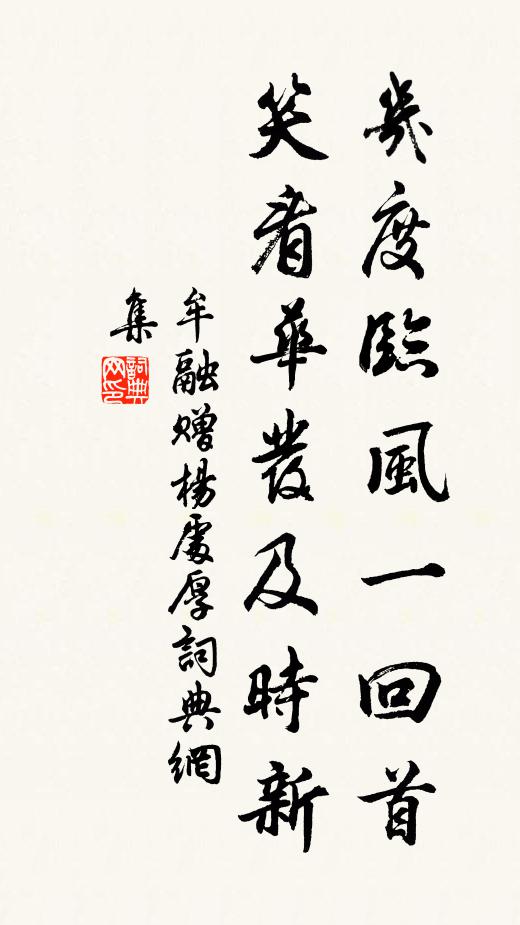 幾度臨風一回首
笑看華發及時新
牟融贈楊處厚詞典網
集
詞典
网印